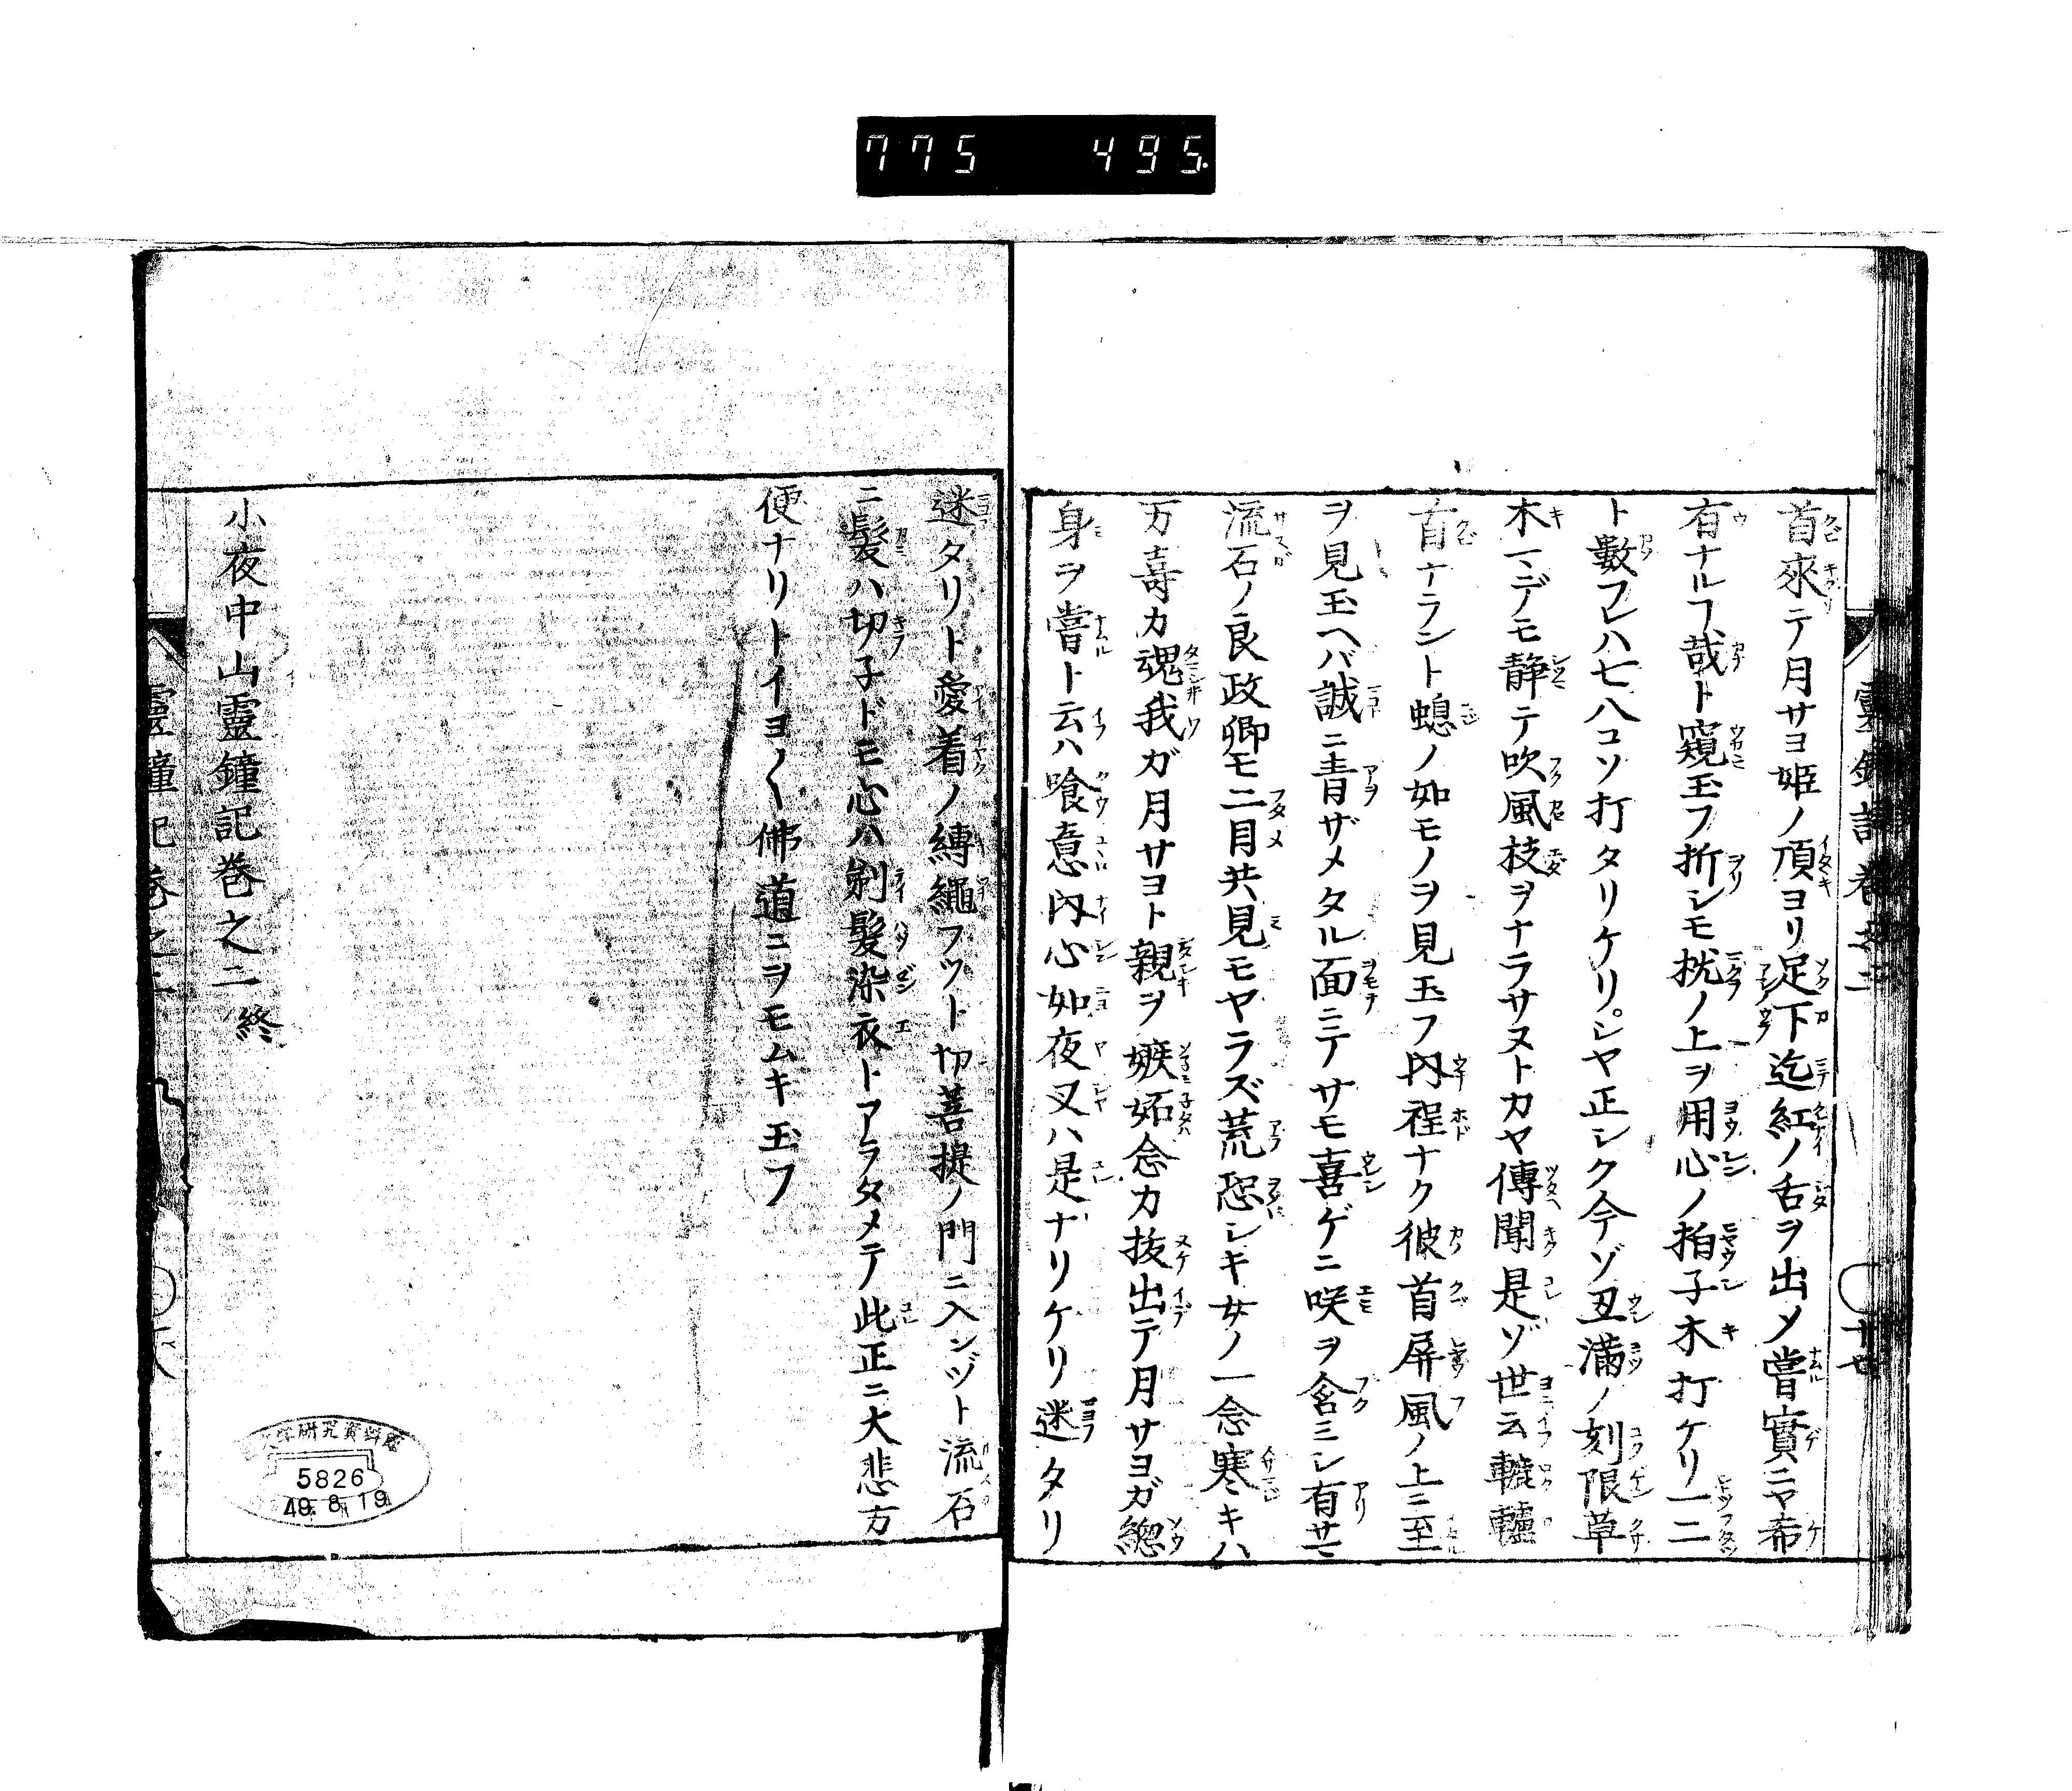 775 495.
首來テ月サヨ姫ノ頂ヨリ足下迄紅ノ舌ヲ出メ嘗實ニヤ希
有ナルフ哉ト窺玉フ折シモ枕ノ上ヲ用心ノ拍子木打ケリ一二
ト數フレハ七八コソ打タリケリ。シヤ正シク今ゾ丑滿ノ刻限草
木マデモ静テ吹風枝ヲナラサヌトカヤ傳聞是ゾ世云轆轤
首ナラント螅ノ如モノヲ見玉フ内程ナク彼首屏風ノ上ニ至
ヲ見玉ヘバ誠ニ青ザメタル面ニテサモ喜ゲニ咲ヲ含ミシ有サマ
流石ノ良政卿モ二目共見モヤラズ荒恐シキ女ノ一念寒キハ
万壽カ魂我ガ月サヨト親ヲ嫉妬念カ抜出テ月サヨガ總
身ヲ嘗ト云ハ喰意内心如夜叉ハ是ナリケリ迷タリ
迷タリト愛着ノ縛繩フツト切菩提ノ門ニ入ンヅト流石
ニ髪ハ切子ドモ心ハ剃髮染衣トアラタメテ此正ニ大悲方
便ナリトイヨ〱佛道ニヲモムキ玉フ
小夜中山靈鐘記巻之二終
5826
49.8.19